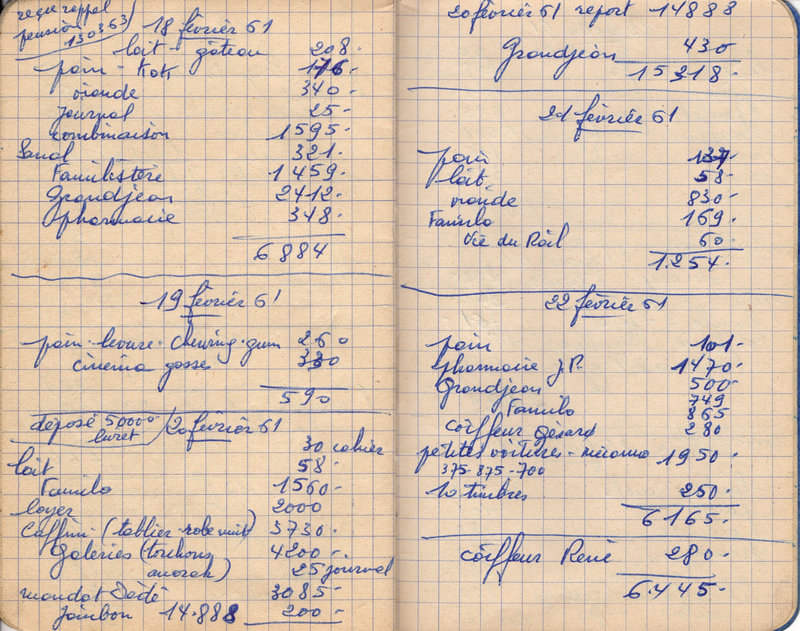 reçu rappel
pension 130363
18 février 61
lait - gâteau 208.
pain - Kok 176.
viande 340.
journal 25-
combinaison 1595.
321.
Familistère 1459.
Grandjean 2412.
pharmacie 348.
6884
19 février 61
pain - levure - chewing-gum 260
cinéma gosse 330
590
déposé 50000
livret
20 février 61
30 cahier
lait 58.
Familo 1560.
loyer 2000
Caffini (tablier - robe nuit) 3730.
Galeries (torchons 4200-
anorak) 25 journal
mandat Dédé 3085
Jambon 14.888 200-
20 février 61 report 14888
Grandjean 430
15318.
21 février 61
pain 137-
lait. 58.
viande 830.
Familo 169.
Vie du Rail 60.
1.254.
22 février 61
pain 101.
pharmacie J.P. 1470.
Grandjean 500-
749
Familo 865
Coiffeur Gérard 280
petites voitures - mécano 1950.
375-875-700
10 timbres 250.
6165.
coiffeur René 280.
6.445.